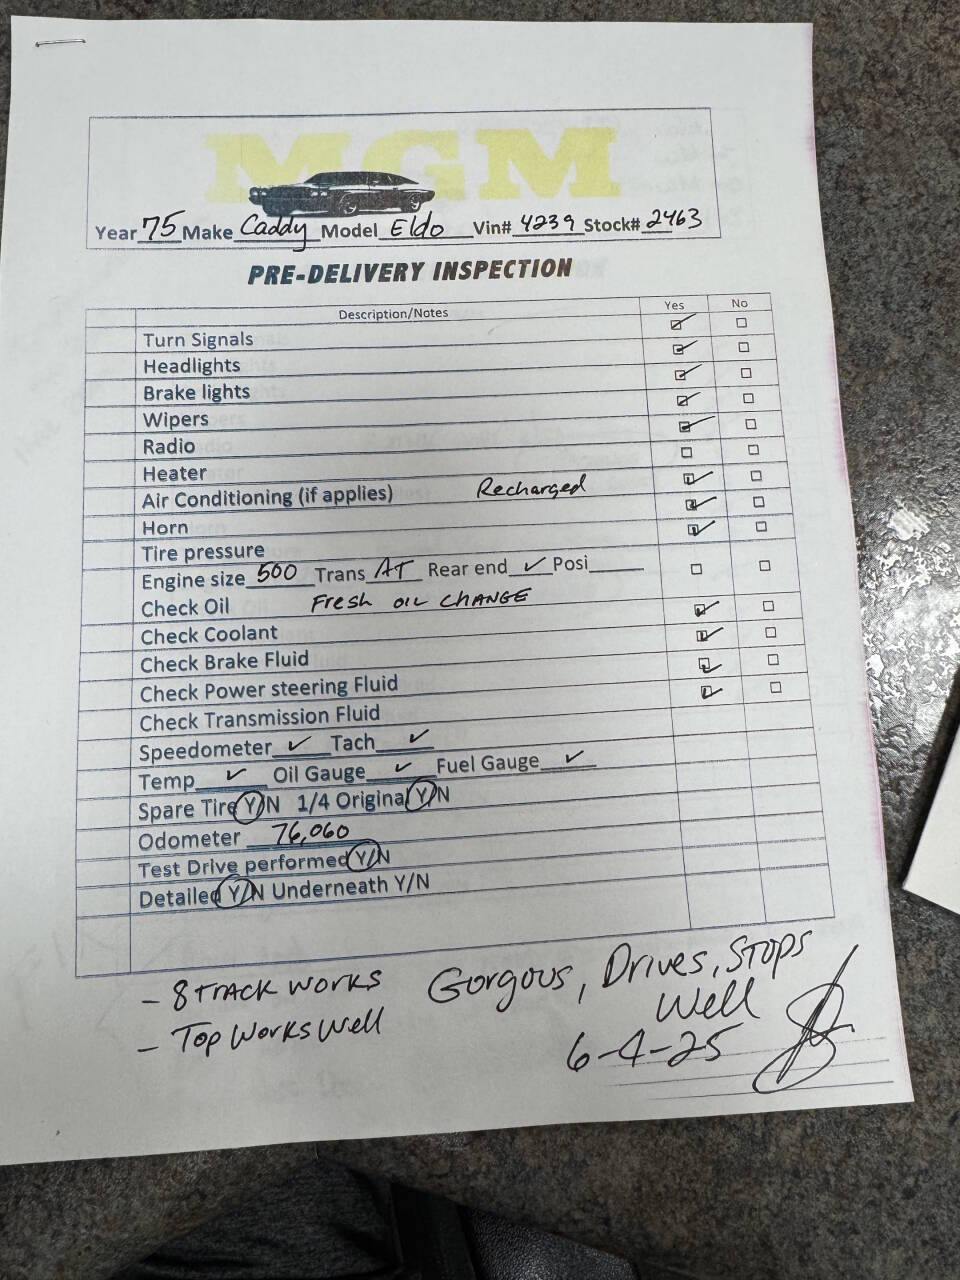 MGM
Year 75 Make Caddy Model Eldo Vin# 4239 Stock# 2463
PRE-DELIVERY INSPECTION
Description/Notes Yes No
Turn Signals
Headlights
Brake lights
Wipers
Radio
Heater
Air Conditioning (if applies) Recharged
Horn
Tire pressure
Engine size 500 Trans AT Rear end ✓ Posi
Check Oil Fresh OIL CHANGE
Check Coolant
Check Brake Fluid
Check Power steering Fluid
Check Transmission Fluid
Speedometer ✓ Tach ✓
Temp ✓ Oil Gauge ✓ Fuel Gauge ✓
Spare Tire Y/N 1/4 Original Y/N
Odometer 76,060
Test Drive performed Y/N
Detailed Y/N Underneath Y/N
- 8 TRACK WORKS
- Top Works Well
Gorgous, Drives, Stops
Well
6-4-25